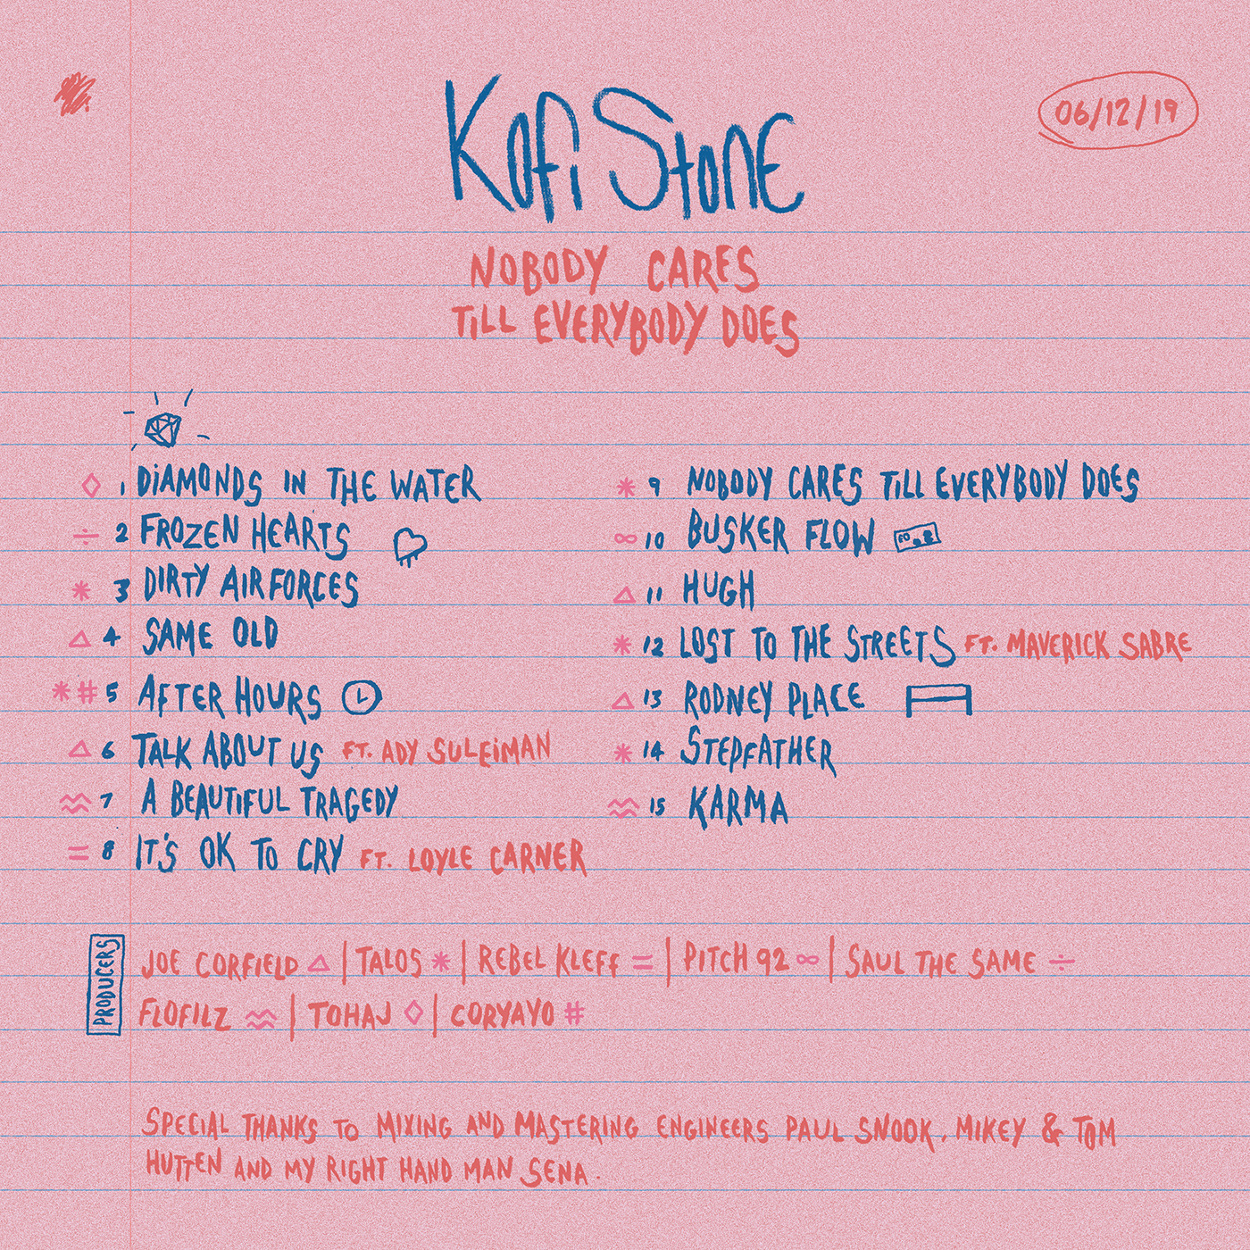 06/12/19
Kofi Stone
NOBODY CARES
TILL EVERYBODY DOES
◇ 1 DIAMONDS IN THE WATER
÷ 2 FROZEN HEARTS
* 3 DIRTY AIRFORCES
△ 4 SAME OLD
* # 5 AFTER HOURS
△ 6 TALK ABOUT US FT. ADY SULEIMAN
♒ 7 A BEAUTIFUL TRAGEDY
= 8 IT'S OK TO CRY FT. LOYLE CARNER
* 9 NOBODY CARES TILL EVERYBODY DOES
∞ 10 BUSKER FLOW
△ 11 HUGH
* 12 LOST TO THE STREETS FT. MAVERICK SABRE
△ 13 RODNEY PLACE
* 14 STEPFATHER
♒ 15 KARMA
PRODUCERS
JOE CORFIELD △ | TALOS * | REBEL KLEFF = | PITCH 92 ∞ | SAUL THE SAME ÷
FLOFILZ ♒ | TOHAJ ◇ | CORYAYO #
SPECIAL THANKS TO MIXING AND MASTERING ENGINEERS PAUL SNOOK, MIKEY & TOM
HUTTEN AND MY RIGHT HAND MAN SENA.